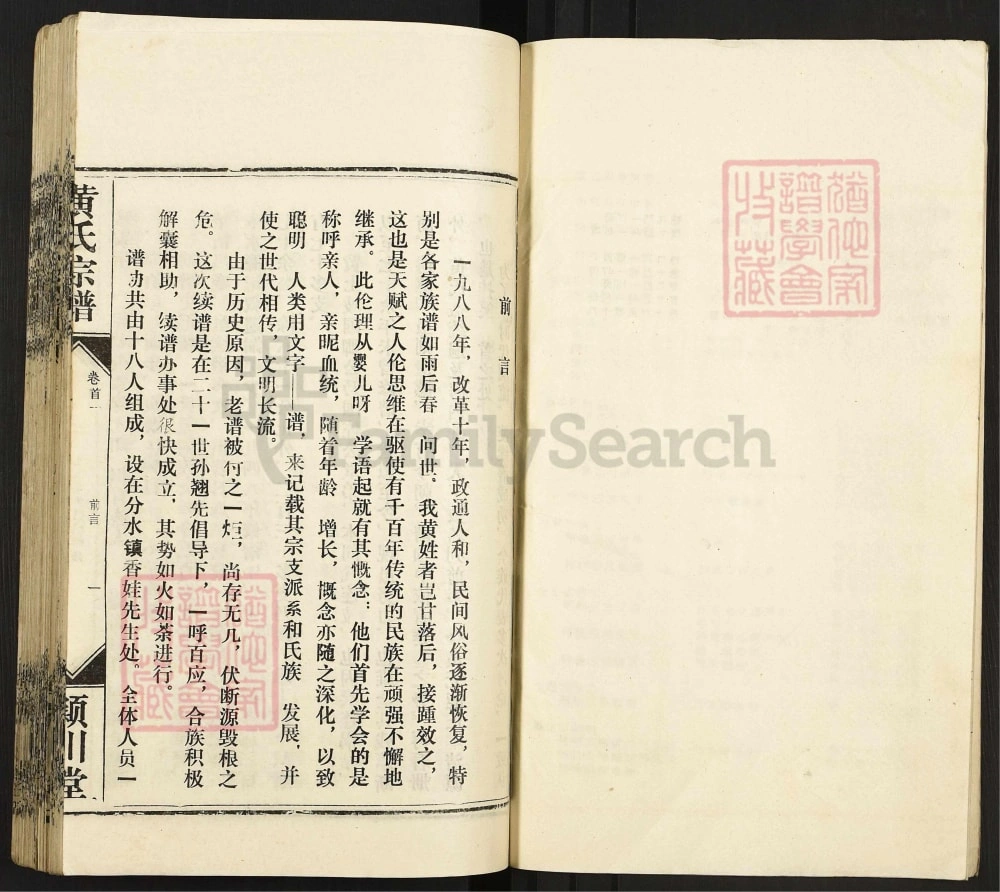 犹他家
谱学会
收藏
前言
一九八八年，改革十年，政通人和，民间风俗逐渐恢复，特
别是各家族谱如雨后春 问世。我黄姓者岂甘落后，接踵效之，
这也是天赋之人伦思维在驱使有千百年传统的民族在顽强不懈地
继承。此伦理从婴儿呀 学语起就有其慨念：他们首先学会的是
称呼亲人，亲昵血统，随着年龄 增长，慨念亦随之深化，以致
聪明 人类用文字——谱，来记载其宗支派系和氏族 发展，并
使之世代相传，文明长流。
由于历史原因，老谱被付之一炬，尚存无几，伏断源毁根之
危。这次续谱是在二十一世孙翘先倡导下，一呼百应，合族积极
解囊相助，续谱办事处很快成立，其势如火如荼进行。
谱办共由十八人组成，设在分水镇香娃先生处。全体人员一
黄氏宗谱
卷首一
前言
一
颍川堂
FamilySearch